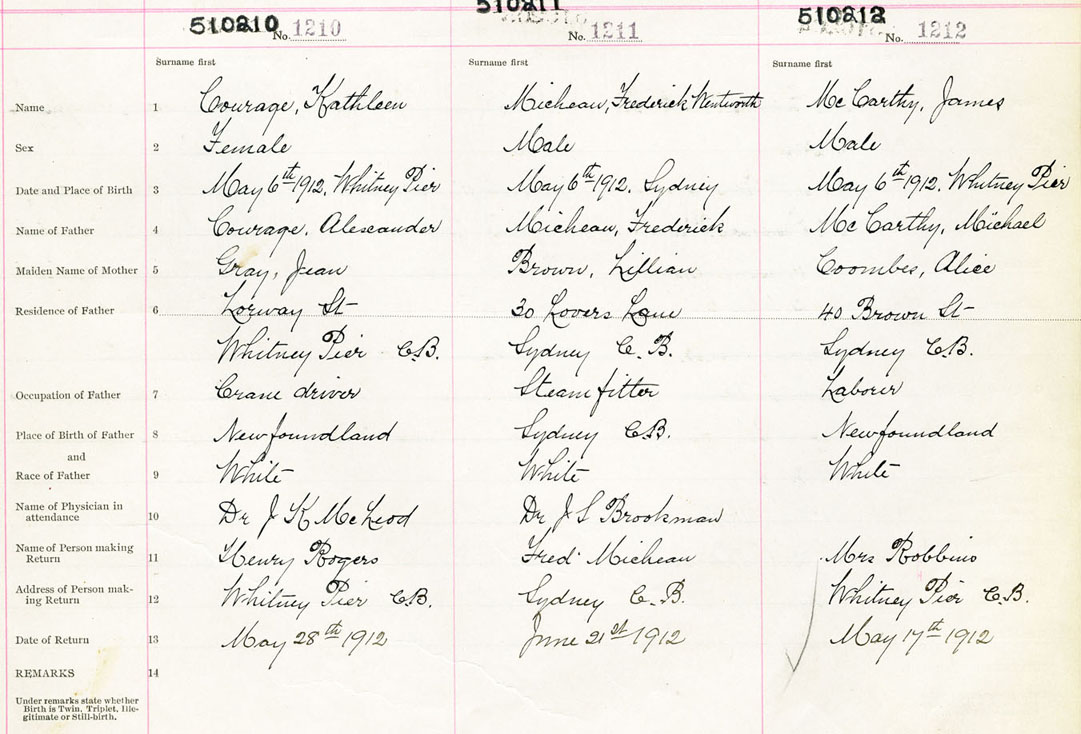 510210 510211 510212
No. 1210 No. 1211 No. 1212
Surname first Surname first Surname first
Name 1 Courage, Kathleen Micheau, Frederick Wentworth McCarthy, James
Sex 2 Female Male Male
Date and Place of Birth 3 May 6th 1912. Whitney Pier May 6th 1912. Sydney May 6th 1912. Whitney Pier
Name of Father 4 Courage, Alexander Micheau, Frederick McCarthy, Michael
Maiden Name of Mother 5 Gray, Jean Brown, Lillian Coombes, Alice
Residence of Father 6 Lorway St 30 Lovers Lane 40 Brown St
Whitney Pier C.B. Sydney C.B. Sydney C.B.
Occupation of Father 7 Crane driver Steamfitter Laborer
Place of Birth of Father 8 Newfoundland Sydney C.B. Newfoundland
and
Race of Father 9 White White White
Name of Physician in
attendance 10 Dr J K McLeod Dr J S Brookman
Name of Person making
Return 11 Henry Rogers Fred Micheau Mrs Robbins
Address of Person mak-
ing Return 12 Whitney Pier C.B. Sydney C.B. Whitney Pier C.B.
Date of Return 13 May 28th 1912 June 21st 1912 May 17th 1912
REMARKS 14
Under remarks state whether
Birth is Twin, Triplet, Ille-
gitimate or Still-birth.